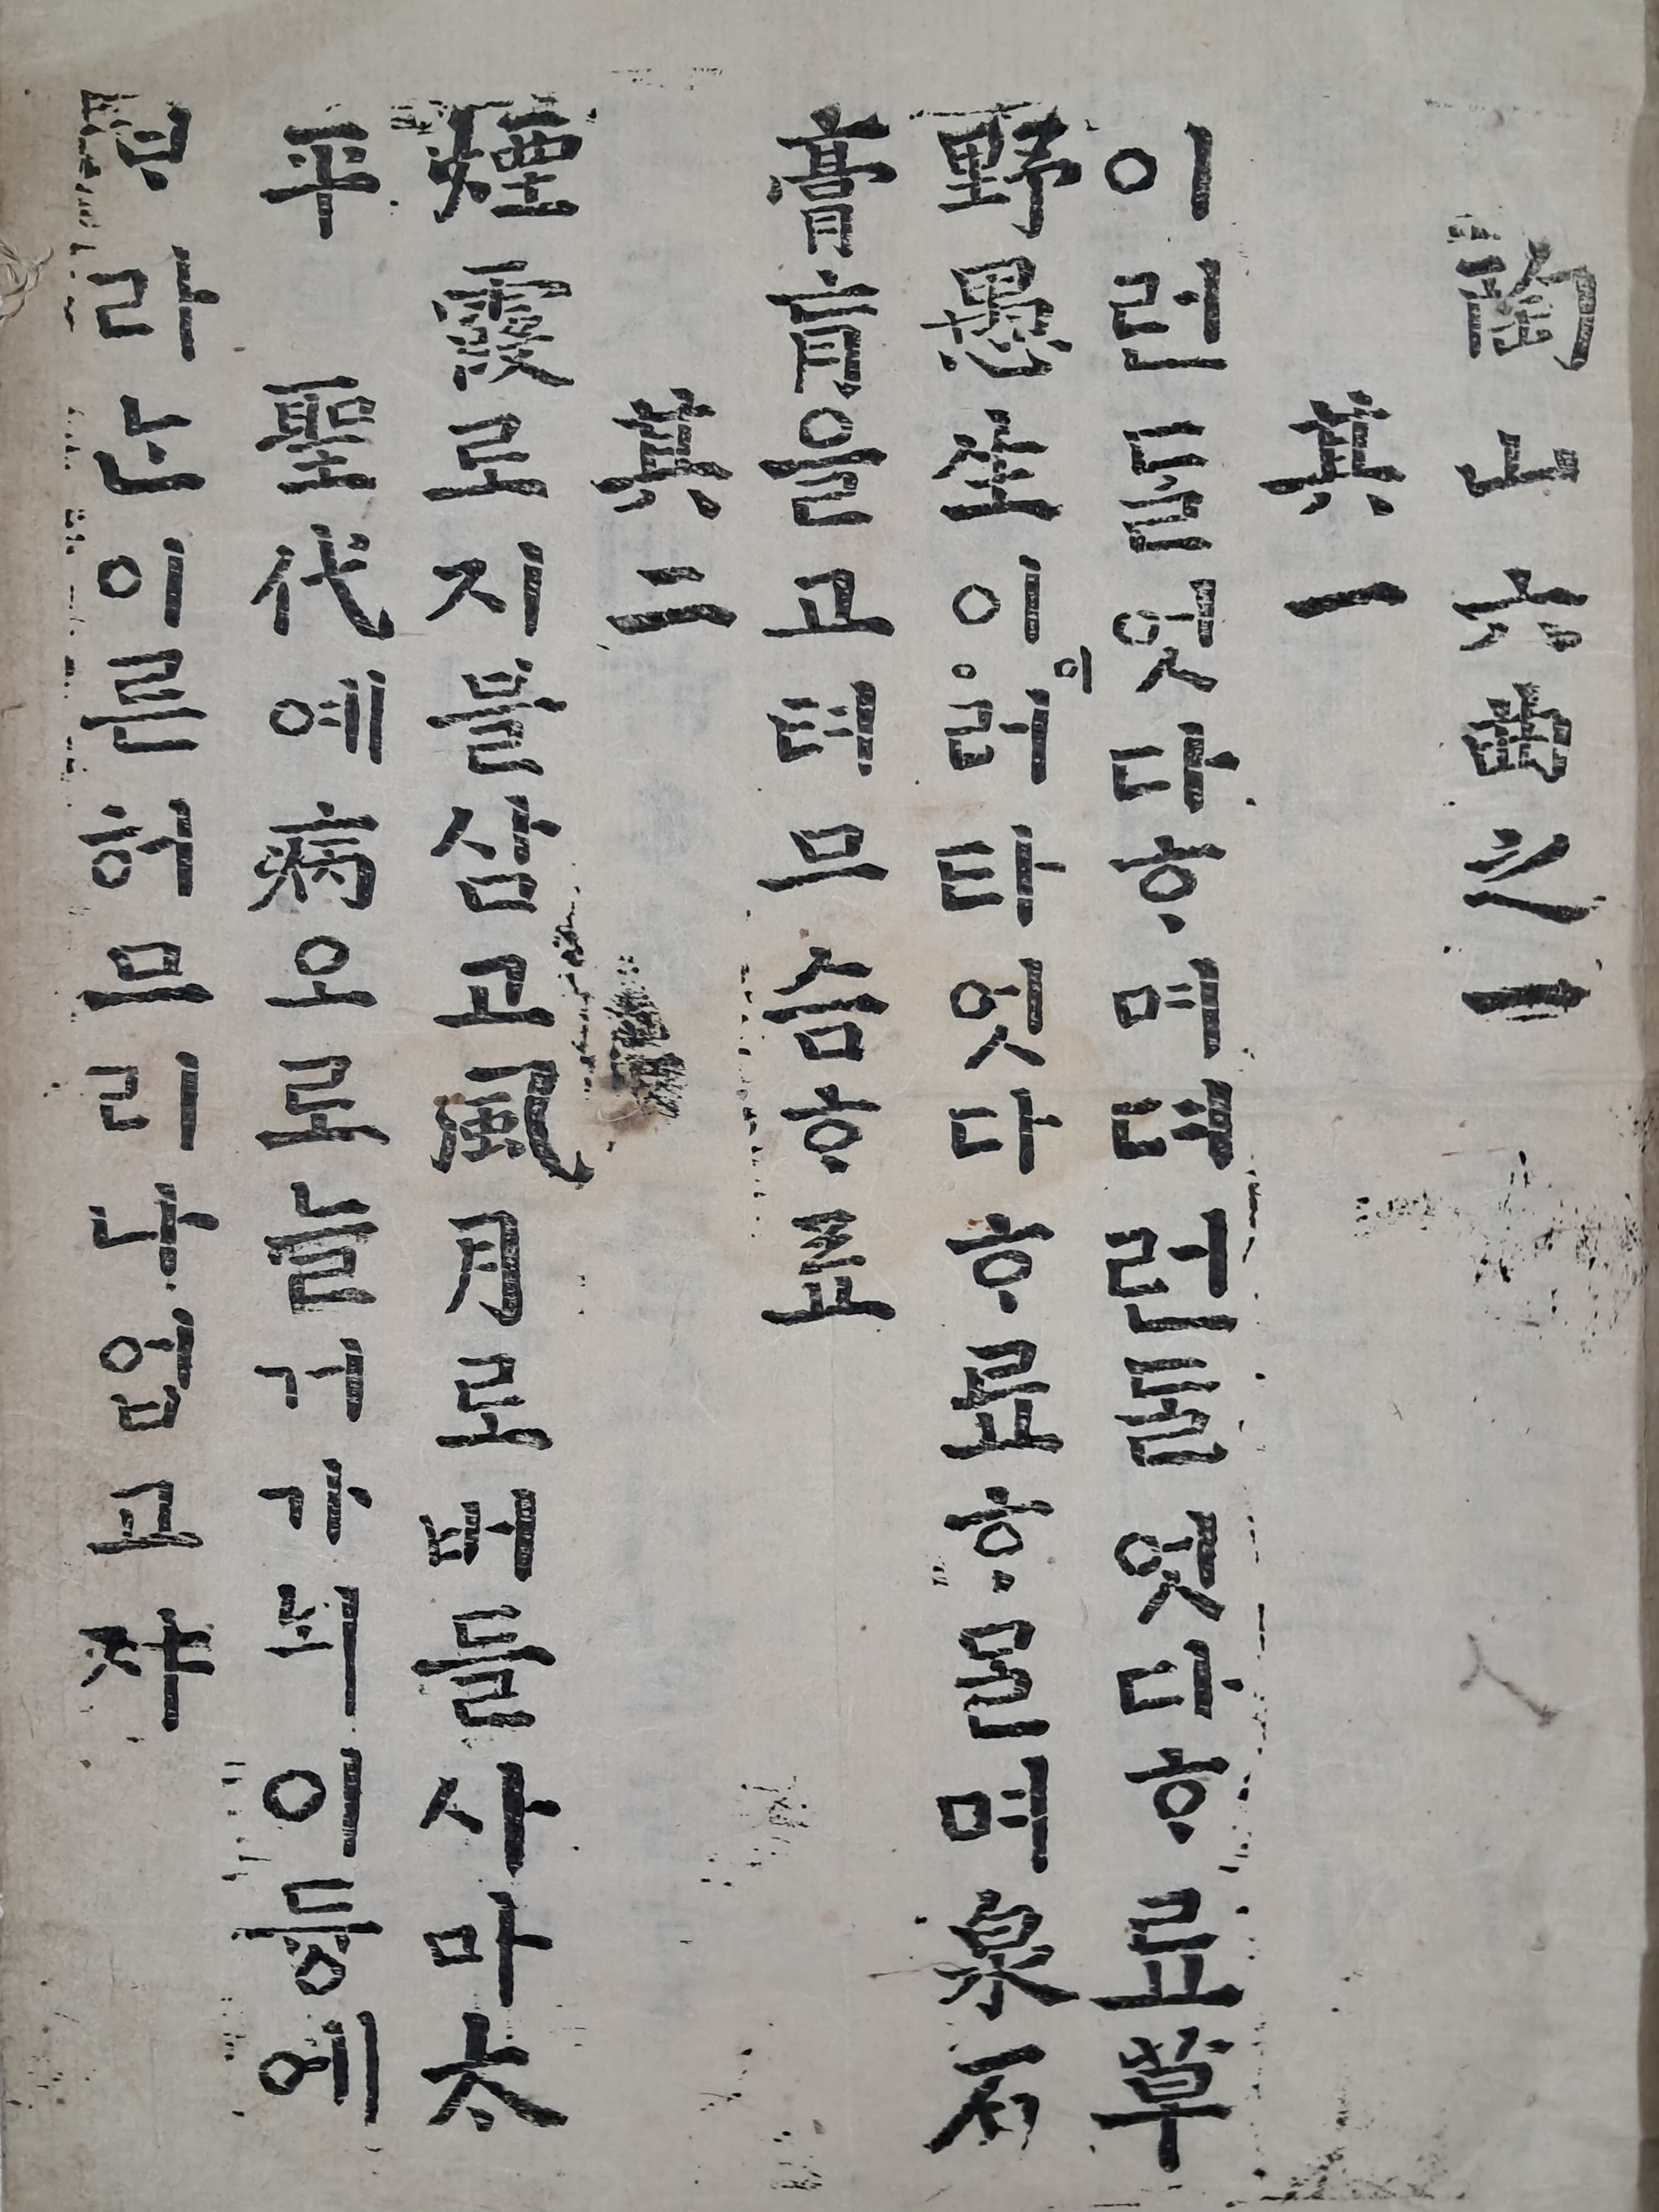 陶山六曲之一
其一
이런ᄃᆞᆯ엇다ᄒᆞ며뎌런ᄃᆞᆯ엇다ᄒᆞ료草
野愚生이이러타엇다ᄒᆞ료ᄒᆞᄆᆞᆯ며泉石
膏肓을고텨므슴ᄒᆞ료
其二
煙霞로지블삼고風月로버들사마太
平聖代예病오로늘거가뇌이듕에
ᄇᆞ라ᄂᆞᆫ이른허므리나업고쟈